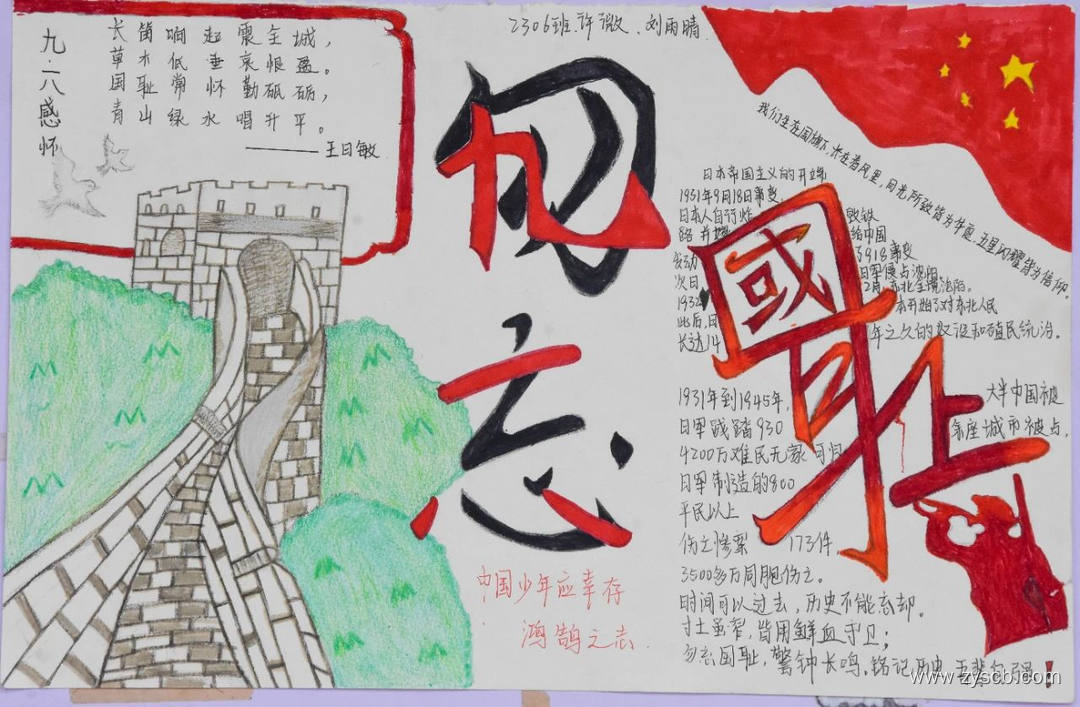 九·一八感怀
长笛响起震全城，
草木低垂哀恨盈。
国耻常怀勤砥砺，
青山绿水唱升平。
——王日敏
2306班.许微、刘雨晴
勿忘
國耻
我们生在国旗下，长在春风里，目光所致皆为华夏，五星闪耀皆为信仰。
日本帝国主义的开端
1931年9月18日事变
日本人自行炸毁铁
路 并 给中国
发动了918事变
次日 日军侵占沈阳
1932 2月，东北全境沦陷。
此后，日本开始了对东北人民
长达14年之久的奴役和殖民统治。
1931年到1945年，大半中国被
日军践踏930余座城市被占，
4200万难民无家可归
日军制造的800
平民以上
伤亡惨案 173件，
3500多万同胞伤亡。
时间可以过去，历史不能忘却。
寸土虽窄，皆用鲜血守卫；
勿忘国耻，警钟长鸣，铭记历史，吾辈自强！
中国少年应幸存
鸿鹄之志
www.zyscbl.com